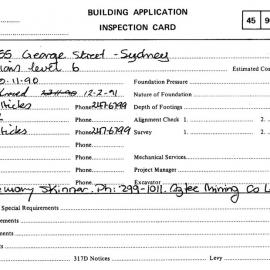 BUILDING APPLICATION
INSPECTION CARD
45 9
55 George Street - Sydney
level 6
Estimated Co
11-90
Foundation Pressure
12-2-91
Nature of Foundation
hicks Phone 247-6799
Depth of Footings
Phone
Alignment Check 1. 2.
hicks Phone 247-6799
Survey 1. 2.
Phone
Phone
Mechanical Services
Phone
Project Manager
Phone
Excavator
Skinner. Ph: 299-1011. Aztec Mining Co L
Special Requirements
ements
ments
317D Notices
Levy